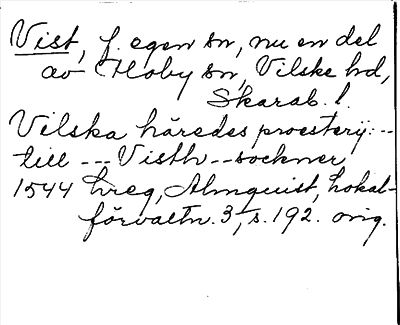 Vist, f. egen sn, nu en del
av Håby sn, Vilske hd,
Skarab. l.
Vilska häredes proesterij: --
till --- Visth -- sockner
1544 hreg, Almquist, Lokal-
förvaltn. 3, s. 192. orig.